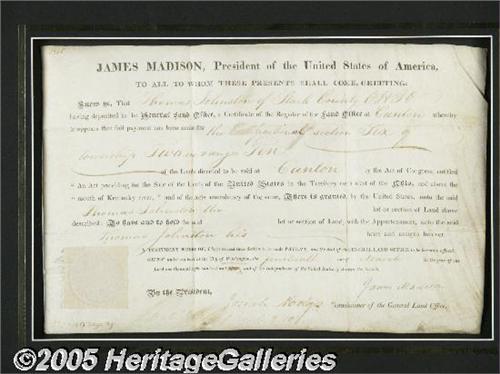 JAMES MADISON, President of the United States of America,
TO ALL TO WHOM THESE PRESENTS SHALL COME, GREETING.
Know ye, That Thomas Johnston of Stark County Ohio
having deposited in the General Land Office, a Certificate of the Register of the Land Office at Canton whereby
it appears that full payment has been made for the section Six of
township ranges Ten
of the Lands directed to be sold at Canton by the Act of Congress, entitled
"An Act providing for the Sale of the Lands of the United States in the Territory of the Ohio, and above
the mouth of Kentucky river," and of the acts amendatory of the same, There is granted, by the United States, unto the said
Thomas Johnston the lot or section of Land above
described: To have and to hold the said lot or section of Land, with the Appurtenances, unto the said
Thomas Johnston his heirs and assigns forever.
IN TESTIMONY WHEREOF, I have caused these Letters to be made PATENT, and the Seal of the GENERAL LAND OFFICE to be hereunto affixed.
GIVEN under my hand at the City of Washington, the day of March in the year of our
Lord one thousand eight hundred and and of the Independence of the United States of America the
By the President, James Madison
Josiah Meigs Commissioner of the General Land Office.
©2005 HeritageGalleries